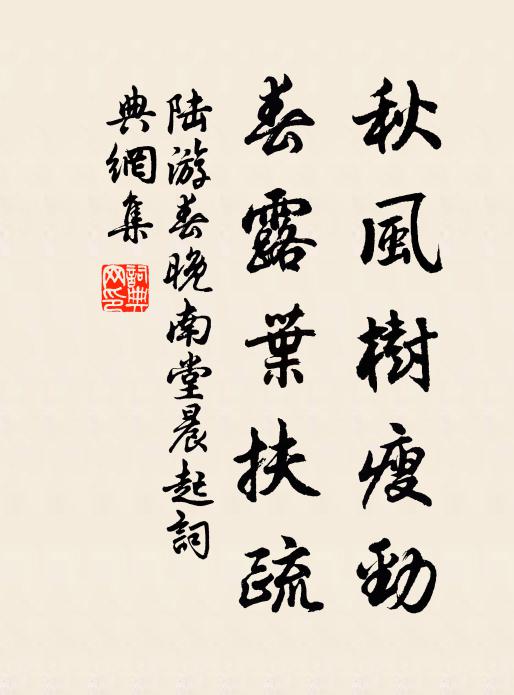 秋風樹瘦勁
春露葉扶疏
陆游春晚南堂晨起詞
典網集
詞典网印